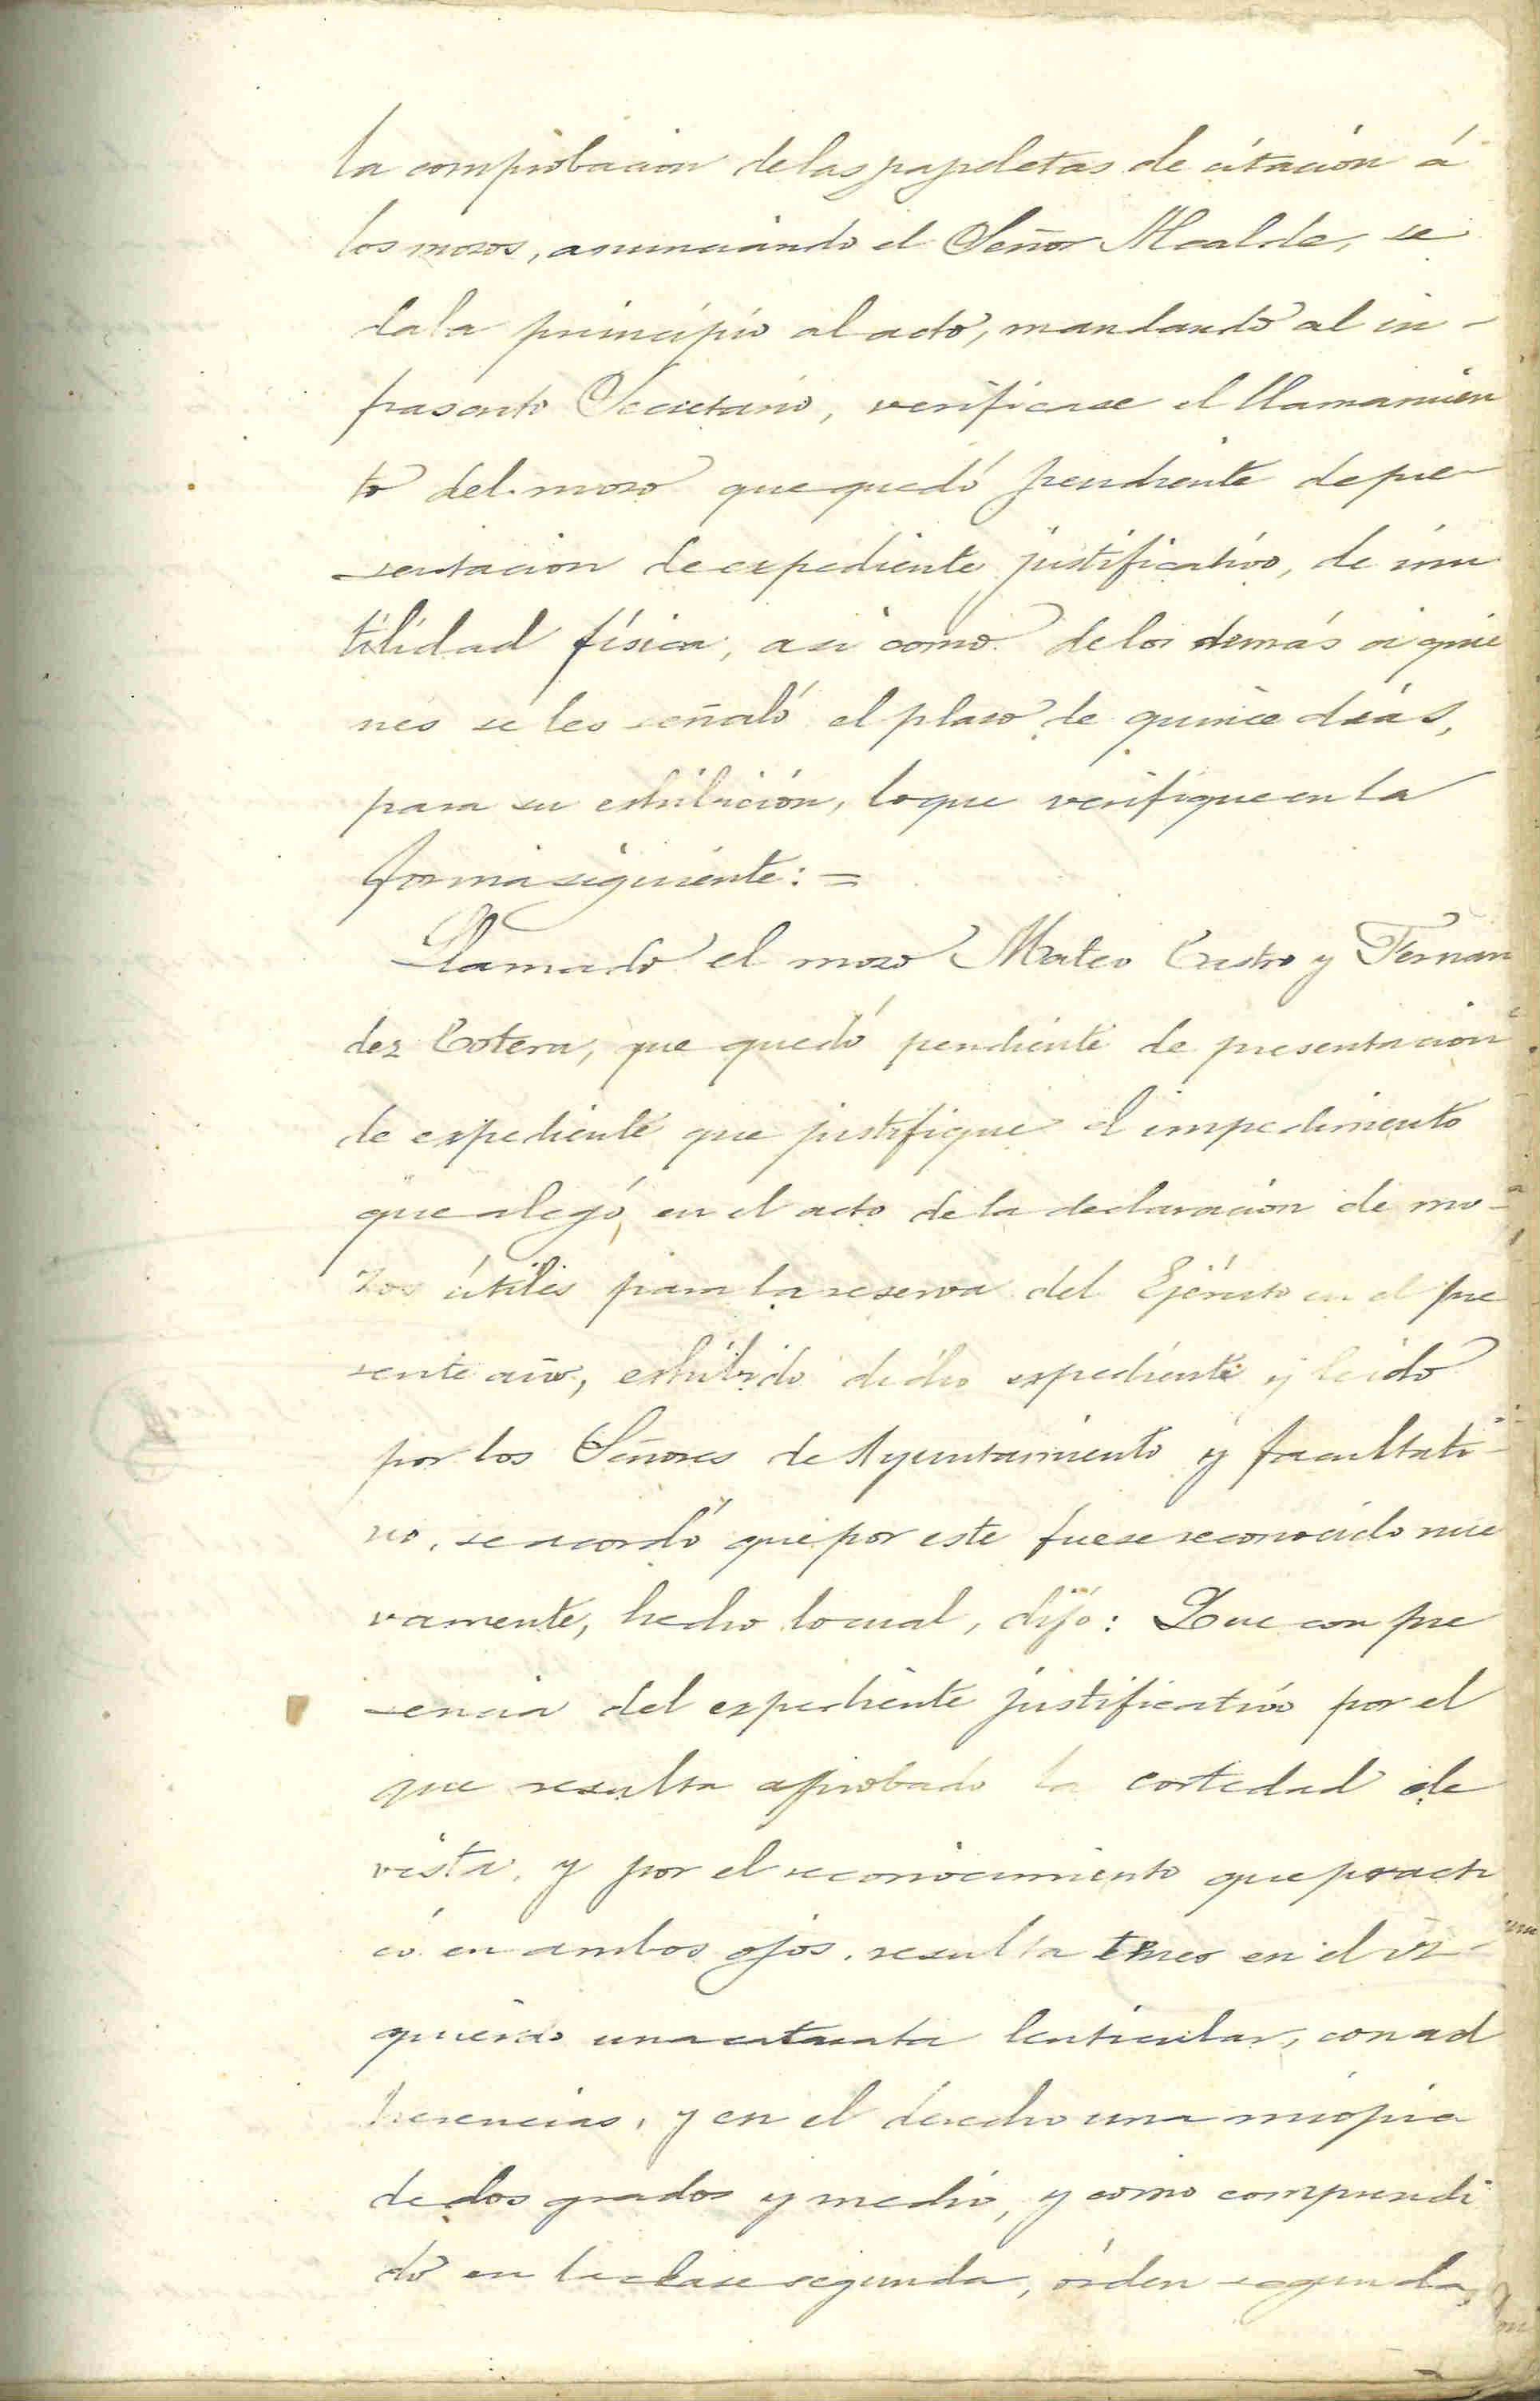 la comprobacion de las papeletas de citación á
los mozos, anunciando el Señor Alcalde, se
daba principio al acto, mandando al in-
frascrito Secretario, verificase el llamamien
to del mozo que quedó pendiente de pre-
sentacion de expediente justificativo, de inu
tilidad física, asi como de los demás á quie
nes se les señaló el plazo de quince dias,
para su exhibición, lo que verifique en la
forma siguiente: =
Llamado el mozo Mateo Castro y Fernan
dez Cotera, que quedó pendiente de presentacion
de expediente que justifique el impedimento
que alegó, en el acto de la declaracion de mo-
zos útiles para la reserva del Ejército en el pre
sente año, exhibido dicho expediente y leido
por los Señores de Ayuntamiento y facultati-
vo, se acordó que por este fuese reconocido nue
vamente, hecho lo cual, dijo: Que con pre
sencia del expediente justificativo por el
que resulta aprobado la cortedad de
vista, y por el reconocimiento que practi
có en ambos ojos, resulta tener en el iz-
quierdo una catarata lenticular, con ad
herencias, y en el derecho una miopia
de dos grados y medio, y como comprendi
do en la clase segunda, órden segunda,